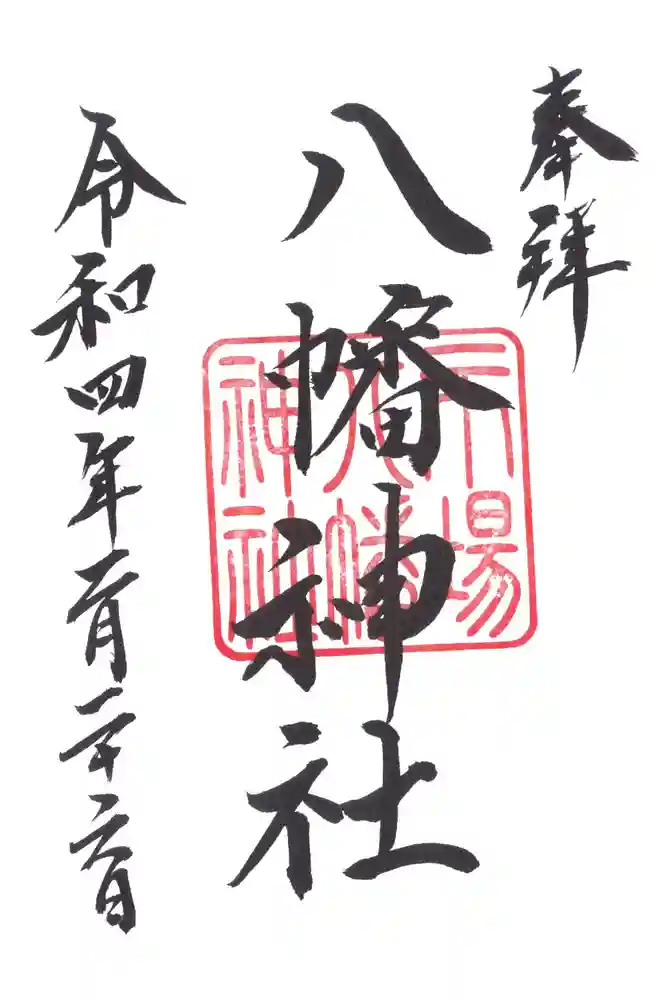 奉拝
八幡神社
令和四年二月二十六日
場
八幡
神社